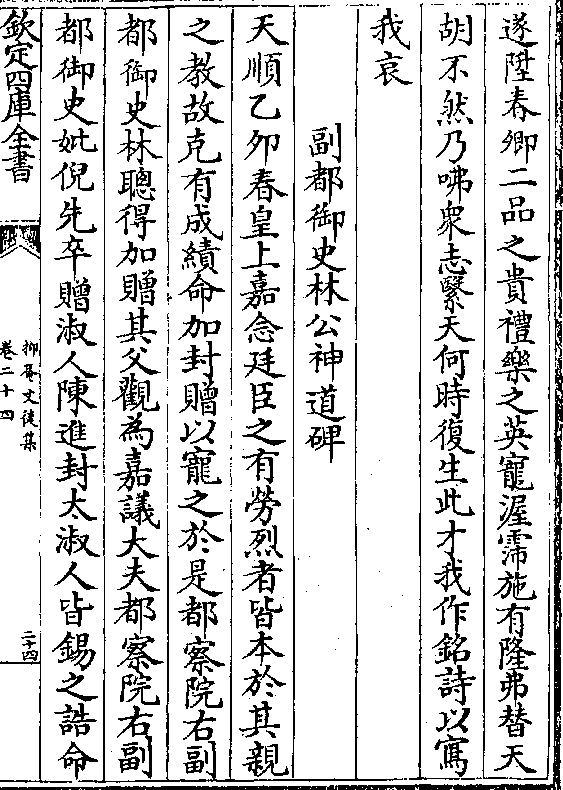 遂陞春卿二品之貴禮樂之英寵渥霈施有隆弗替天
胡不然乃咈衆志繄天何時復生此才我作銘詩以寫
我哀
副都御史林公神道碑
天順乙夘春皇上嘉念廷臣之有勞烈者皆本於其親
之教故克有成績命加封贈以寵之於是都察院右副
都御史林聰得加贈其父觀為嘉議大夫都察院右副
都御史妣倪先卒贈淑人陳進封太淑人皆錫之誥命
欽定四庫全書
抑菴文後集
卷二十四
二十四